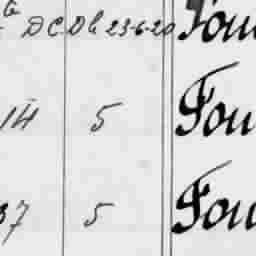 DC Dl 23-6-20 Fou
14 5 Fou
37 5 Fou